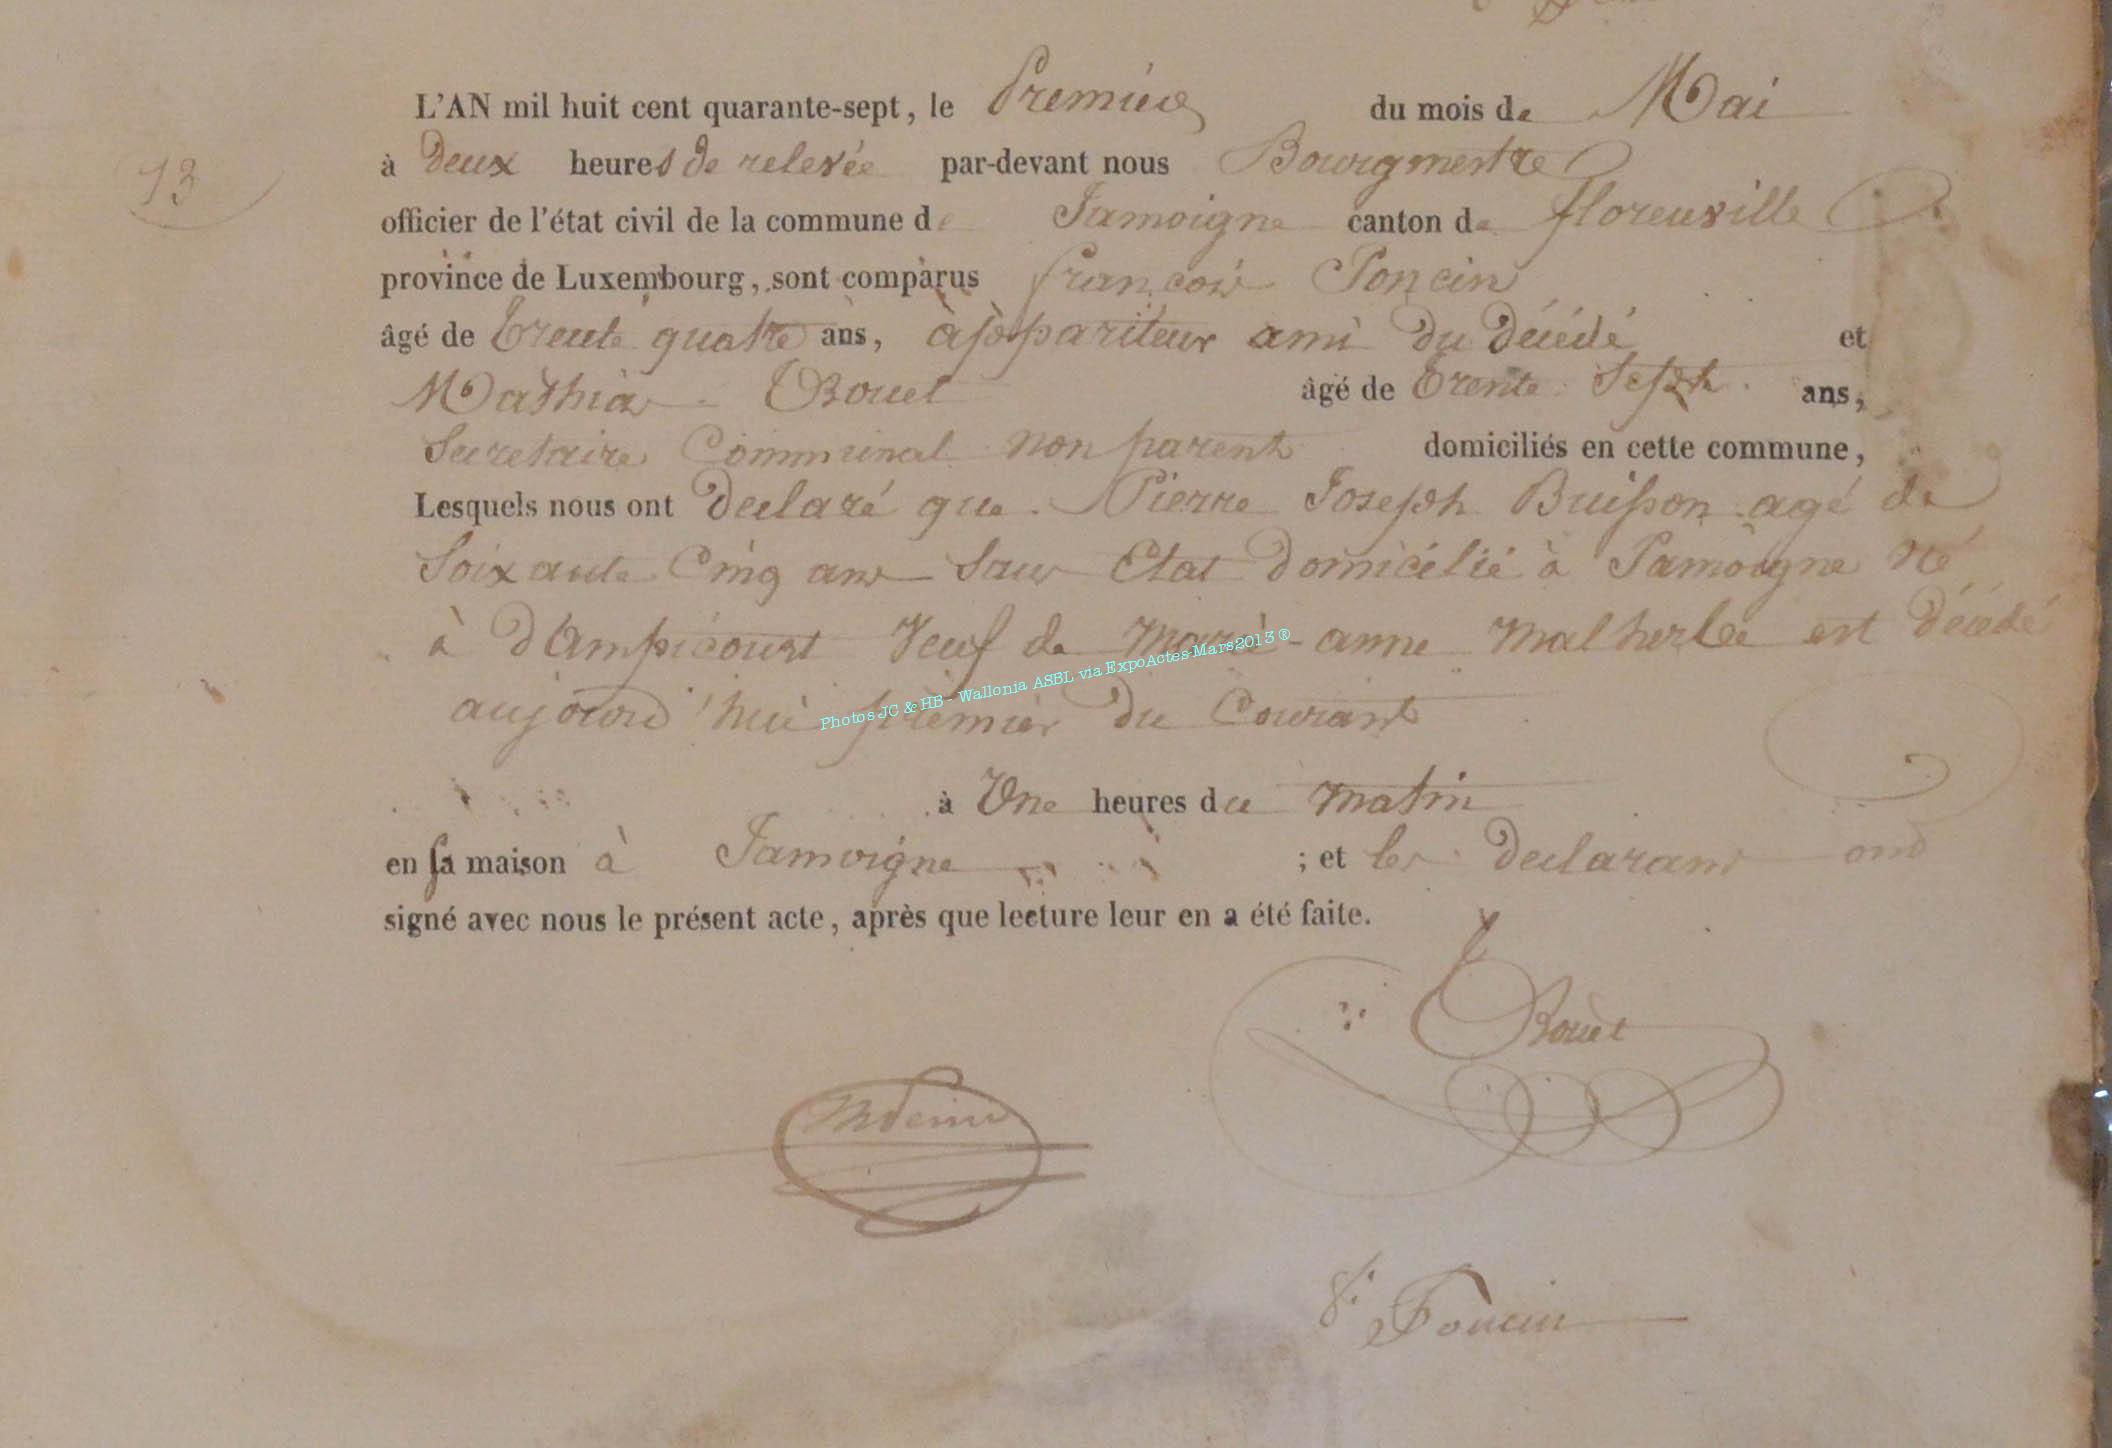 L'AN mil huit cent quarante-sept, le Premier du mois de Mai
13
à Deux heures de relevée par-devant nous Bourgmestre
officier de l'état civil de la commune de Jamoigne canton de florenville
province de Luxembourg, sont comparus françois Poncin
âgé de trente quatre ans, àppariteur ami du décédé et
Mathias Bouet âgé de trente Seph ans,
Secretaire Communal non parent domiciliés en cette commune,
Lesquels nous ont declaré que Pierre Joseph Buisson agé de
Soixante Cinq ans Sans Etat domicélié à Jamoigne né
à d'Ampicourt Veuf de Marie-anne Malherbe est décédé
aujourd'hui prèmier du Courant
Photos JC & HB - Wallonia ASBL via ExpoActes-Mars2013 ®
à Une heures du matin
en sa maison à Jamoigne ; et les declarans ond
signé avec nous le présent acte, après que lecture leur en a été faite.
Bouet
f. Poncin